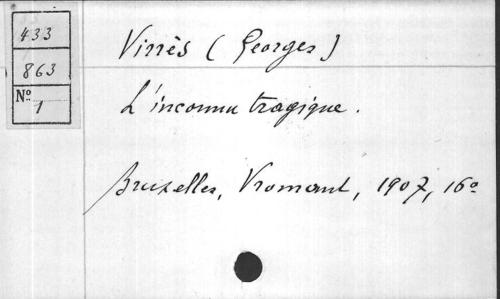 433
863
Nº
1
Virrès (Georges)
L'inconnu tragique.
Bruxelles, Vromant, 1907, 16º